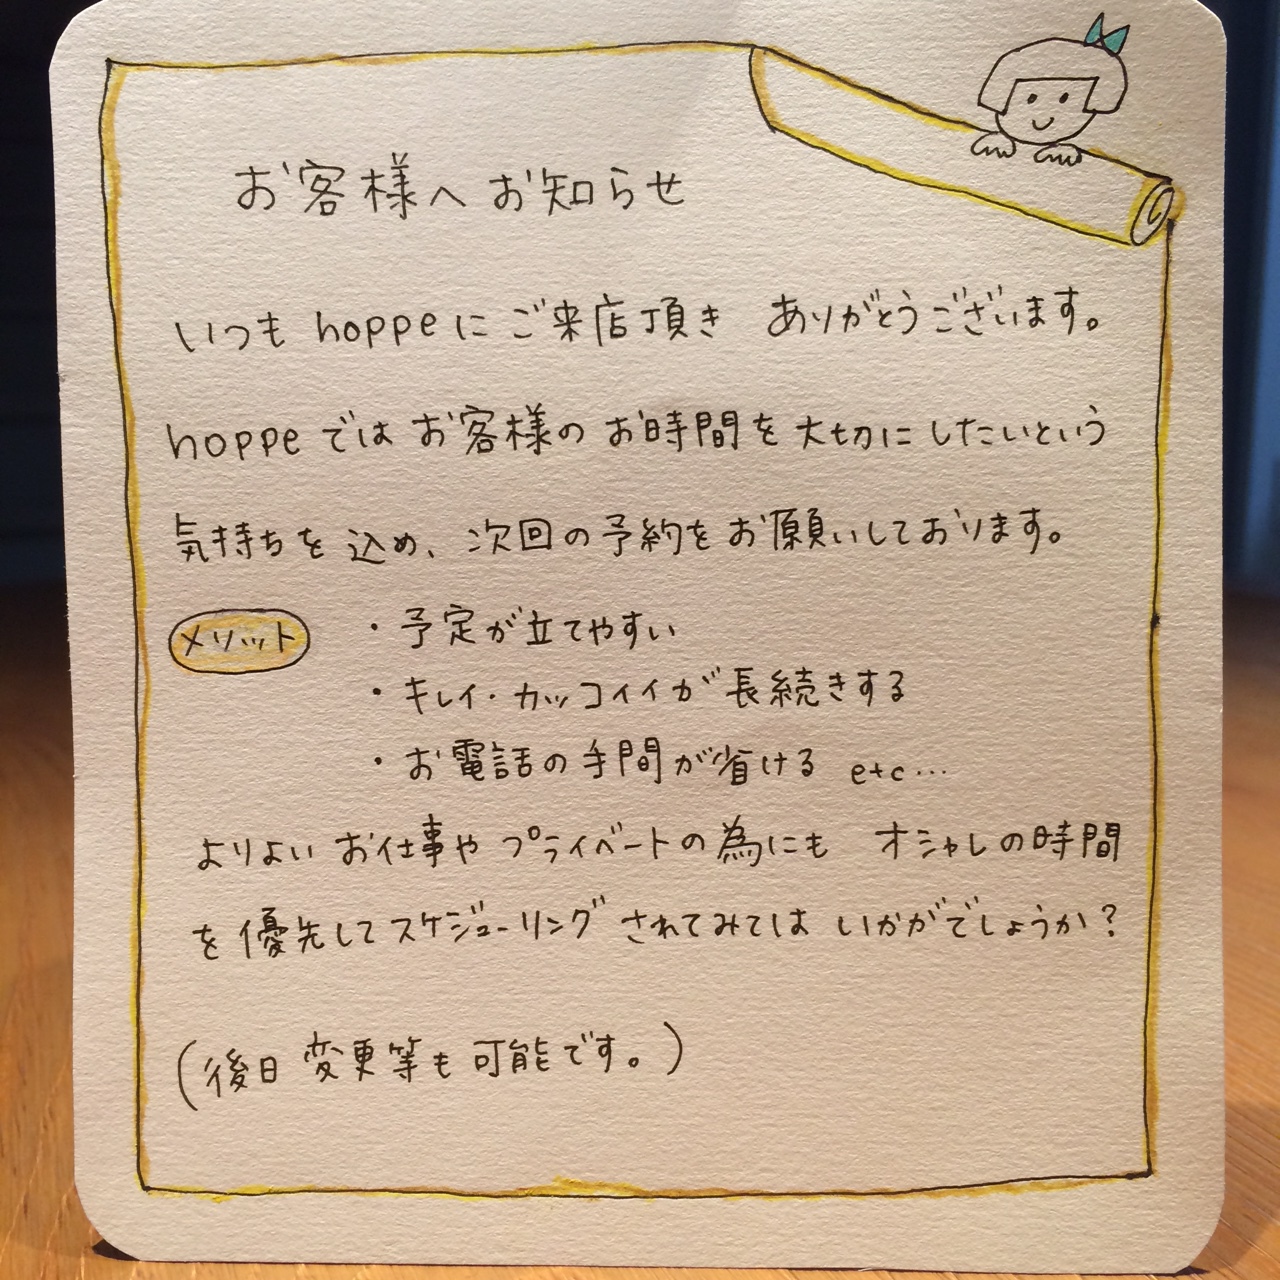 お客様へお知らせ
いつも hoppe にご来店頂き ありがとうございます。
hoppe ではお客様のお時間を大切にしたいという
気持ちを込め、次回の予約をお願いしております。
メリット ・予定が立てやすい
・キレイ・カッコイイが長続きする
・お電話の手間が省ける etc…
よりよいお仕事やプライベートの為にも オシャレの時間
を優先してスケジューリングされてみては いかがでしょうか?
(後日変更等も可能です。)